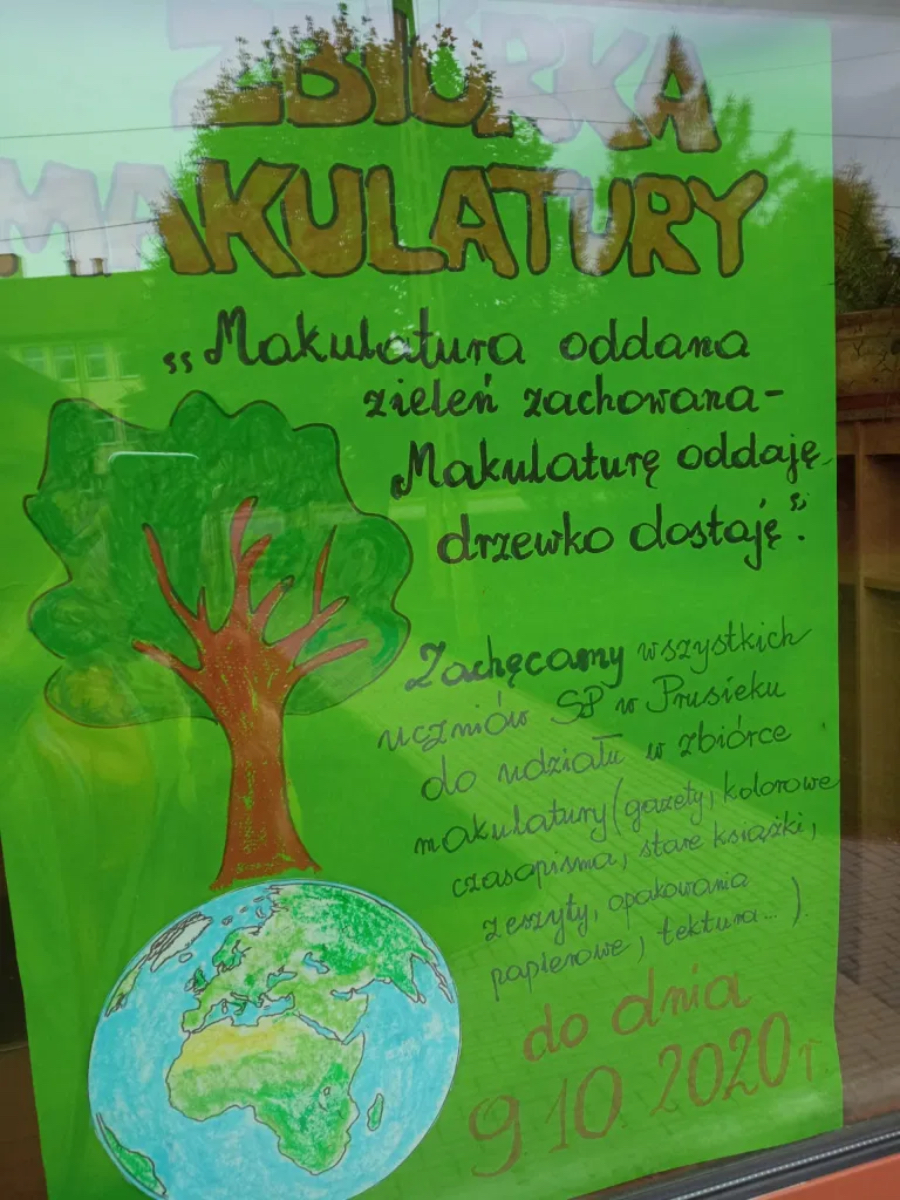 ZBIÓRKA
MAKULATURY
„Makulatura oddana
zieleń zachowana-
Makulaturę oddaję
drzewko dostaję”.
Zachęcamy wszystkich
uczniów SP w Prusieku
do udziału w zbiórce
makulatury (gazety, kolorowe
czasopisma, stare książki,
zeszyty, opakowania
papierowe, tektura...).
do dnia
9.10.2020r